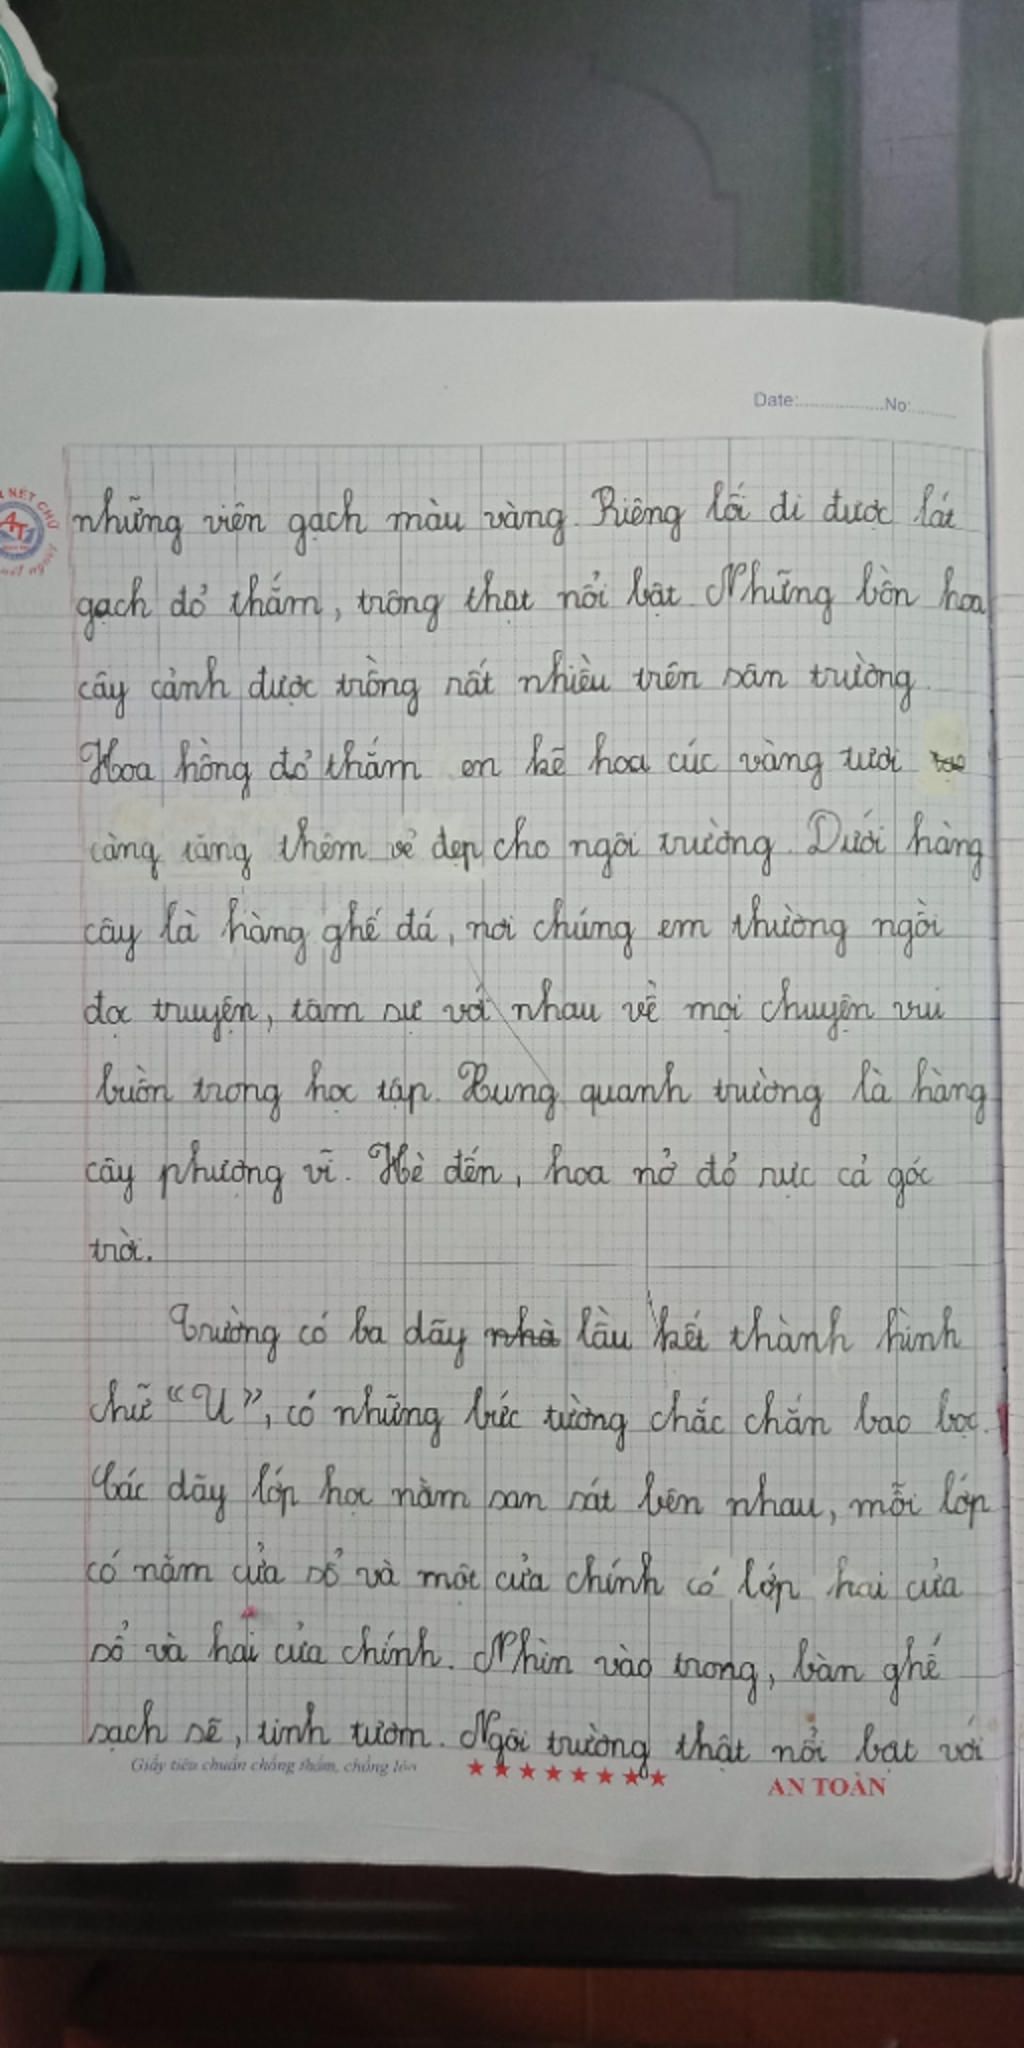 Date:...................No:.........
NÉT CHỮ
AT
nết người
những viên gạch màu vàng. Riêng lối đi được lát
gạch đỏ thắm, trông thật nổi bật. Những bồn hoa
cây cảnh được trồng rất nhiều trên sân trường.
Hoa hồng đỏ thắm en kẽ hoa cúc vàng tươi
càng tăng thêm vẻ đẹp cho ngôi trường. Dưới hàng
cây là hàng ghế đá, nơi chúng em thường ngồi
đọc truyện, tâm sự với nhau về mọi chuyện vui
buồn trong học tập. Xung quanh trường là hàng
cây phượng vĩ. Hè đến, hoa nở đỏ rực cả góc
trời.
Trường có ba dãy nhà lầu kết thành hình
chữ "U", có những bức tường chắc chắn bao bọc.
Các dãy lớp học nằm san sát bên nhau, mỗi lớp
có năm cửa sổ và một cửa chính có lớp hai cửa
sổ và hai cửa chính. Nhìn vào trong, bàn ghế
sạch sẽ, tinh tươm. Ngôi trường thật nổi bật với
Giấy tiêu chuẩn chống thấm, chống lóa
AN TOÀN